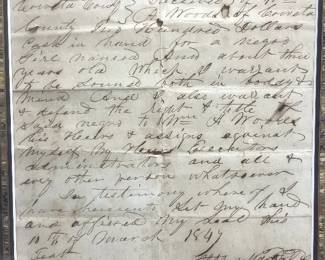 Coweta County Received of Wm
A Woods of Coweta
County Two Hundred Dollars
Cash in hand for a negro
Girl named And about three
years old Which I warrant
to be Sound both in body &
Mind And I also warrant
& defend the Right & Title of
Said negro to Wm A Woods
his Heirs & assigns against
Myself My Heirs Executors
administrators and all &
every other person whatsoever
In testimony whereof I
have hereunto Set my hand
and affixed My Seal this
10th of March 1847
Test